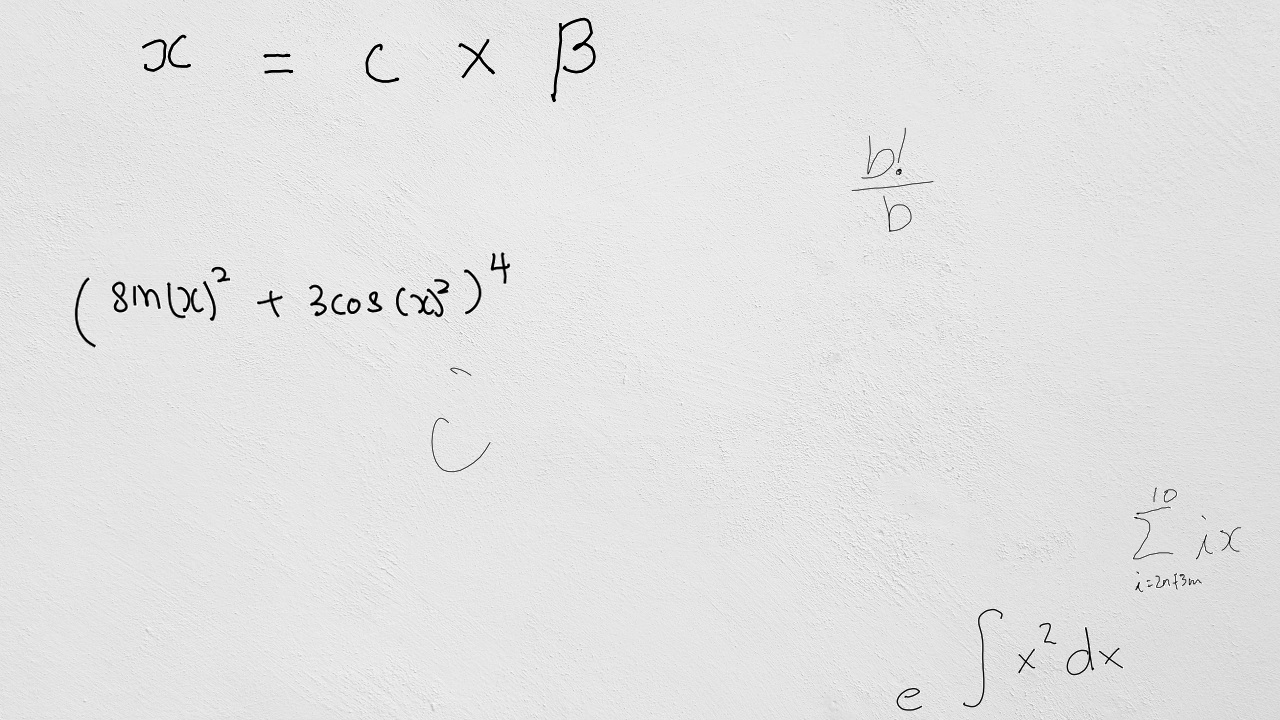 x = c × β
b!/b
(sin(x)² + 3cos(x)²)⁴
∑_{i=2n+3m}^{10} ix
e^{∫x²dx}